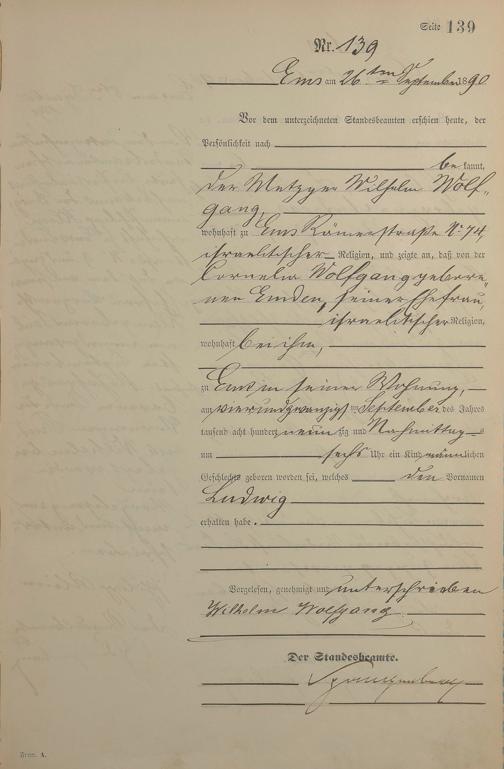 Seite 139
Nr. 139
Ems am 26ten September 1890
Vor dem unterzeichneten Standesbeamten erschien heute, der
Persönlichkeit nach
bekannt,
der Metzger Wilhelm Wolf-
gang,
wohnhaft zu Ems Römerstraße No 74,
israelitischer Religion, und zeigte an, daß von der
Cornelia Wolfgang gebore-
nen Emden, seiner Ehefrau,
israelitischer Religion,
wohnhaft bei ihm,
zu Ems in seiner Wohnung,
am vierundzwanzigsten September des Jahres
tausend acht hundert neunzig und Nachmittags
um sechs Uhr ein Kind männlichen
Geschlechts geboren worden sei, welches den Vornamen
Ludwig
erhalten habe.
Vorgelesen, genehmigt und unterschrieben
Wilhelm Wolfgang
Der Standesbeamte.
Spangenberg
Form. A.